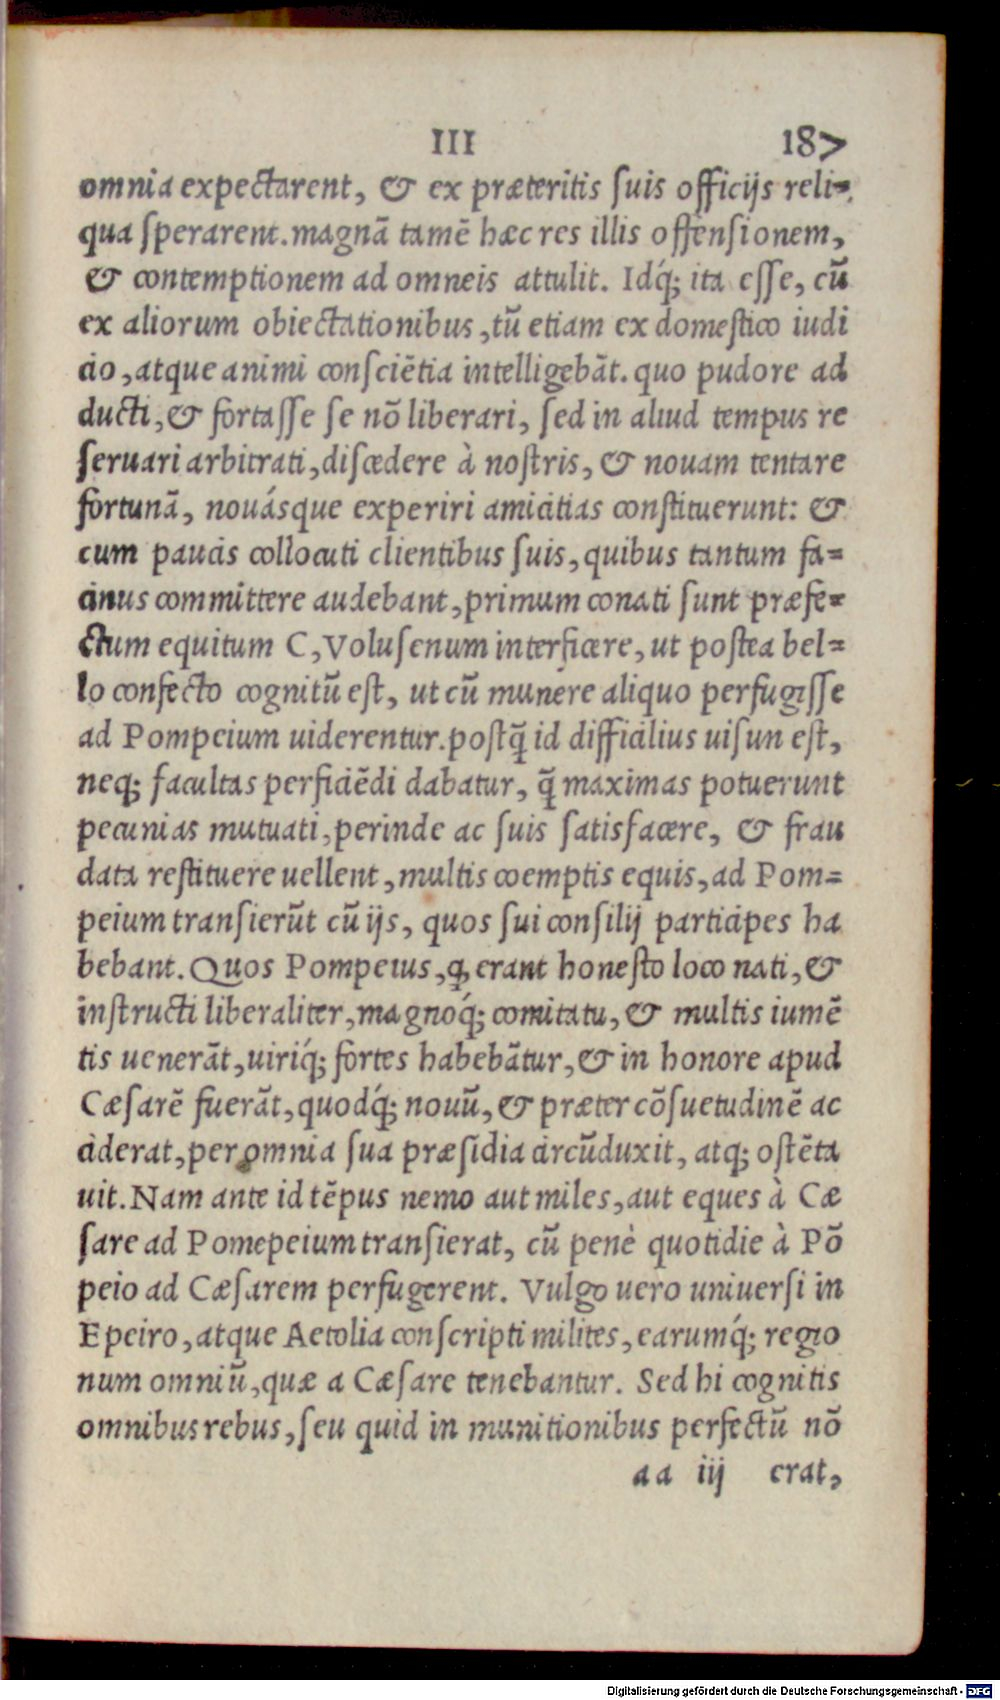 III 187
omnia expectarent, & ex præteritis ſuis officijs reli=
qua ſperarent. magnā tamē hæc res illis offenſionem,
& contemptionem ad omneis attulit. Idq́; ita eſſe, cū
ex aliorum obiectationibus, tū etiam ex domeſtico iudi
cio, atque animi conſciētia intelligebāt. quo pudore ad
ducti, & fortaſſe ſe nō liberari, ſed in aliud tempus re
ſeruari arbitrati, diſcedere à noſtris, & nouam tentare
fortunā, nouásque experiri amicitias conſtituerunt: &
cum paucis collocuti clientibus ſuis, quibus tantum fa=
cinus committere audebant, primum conati ſunt præfe=
ctum equitum C, Voluſenum interficere, ut poſtea bel=
lo confecto cognitū eſt, ut cū munere aliquo perfugiſſe
ad Pompeium uiderentur. poſtq̄ id difficilius uiſun eſt,
neq; facultas perficiēdi dabatur, q̄ maximas potuerunt
pecunias mutuati, perinde ac ſuis ſatisfacere, & frau
data reſtituere uellent, multis coemptis equis, ad Pom=
peium tranſierūt cū ijs, quos ſui conſilij participes ha
bebant. Quos Pompeius, ꝗ erant honeſto loco nati, &
inſtructi liberaliter, magnoq́; comitatu, & multis iumē
tis uenerāt, uiriq́; fortes habebātur, & in honore apud
Cæſarē fuerāt, quodq́; nouū, & præter cōſuetudinē ac
ciderat, per omnia ſua præſidia circūduxit, atq; oſtēta
uit. Nam ante id tēpus nemo aut miles, aut eques à Cæ
ſare ad Pomepeium tranſierat, cū penè quotidie à Pō
peio ad Cæſarem perfugerent. Vulgo uero uniuerſi in
Epeiro, atque Aetolia conſcripti milites, earumq́; regio
num omniū, quæ a Cæſare tenebantur. Sed hi cognitis
omnibus rebus, ſeu quid in munitionibus perfectū nō
aa iij erat,
Digitalisierung gefördert durch die Deutsche Forschungsgemeinschaft - DFG